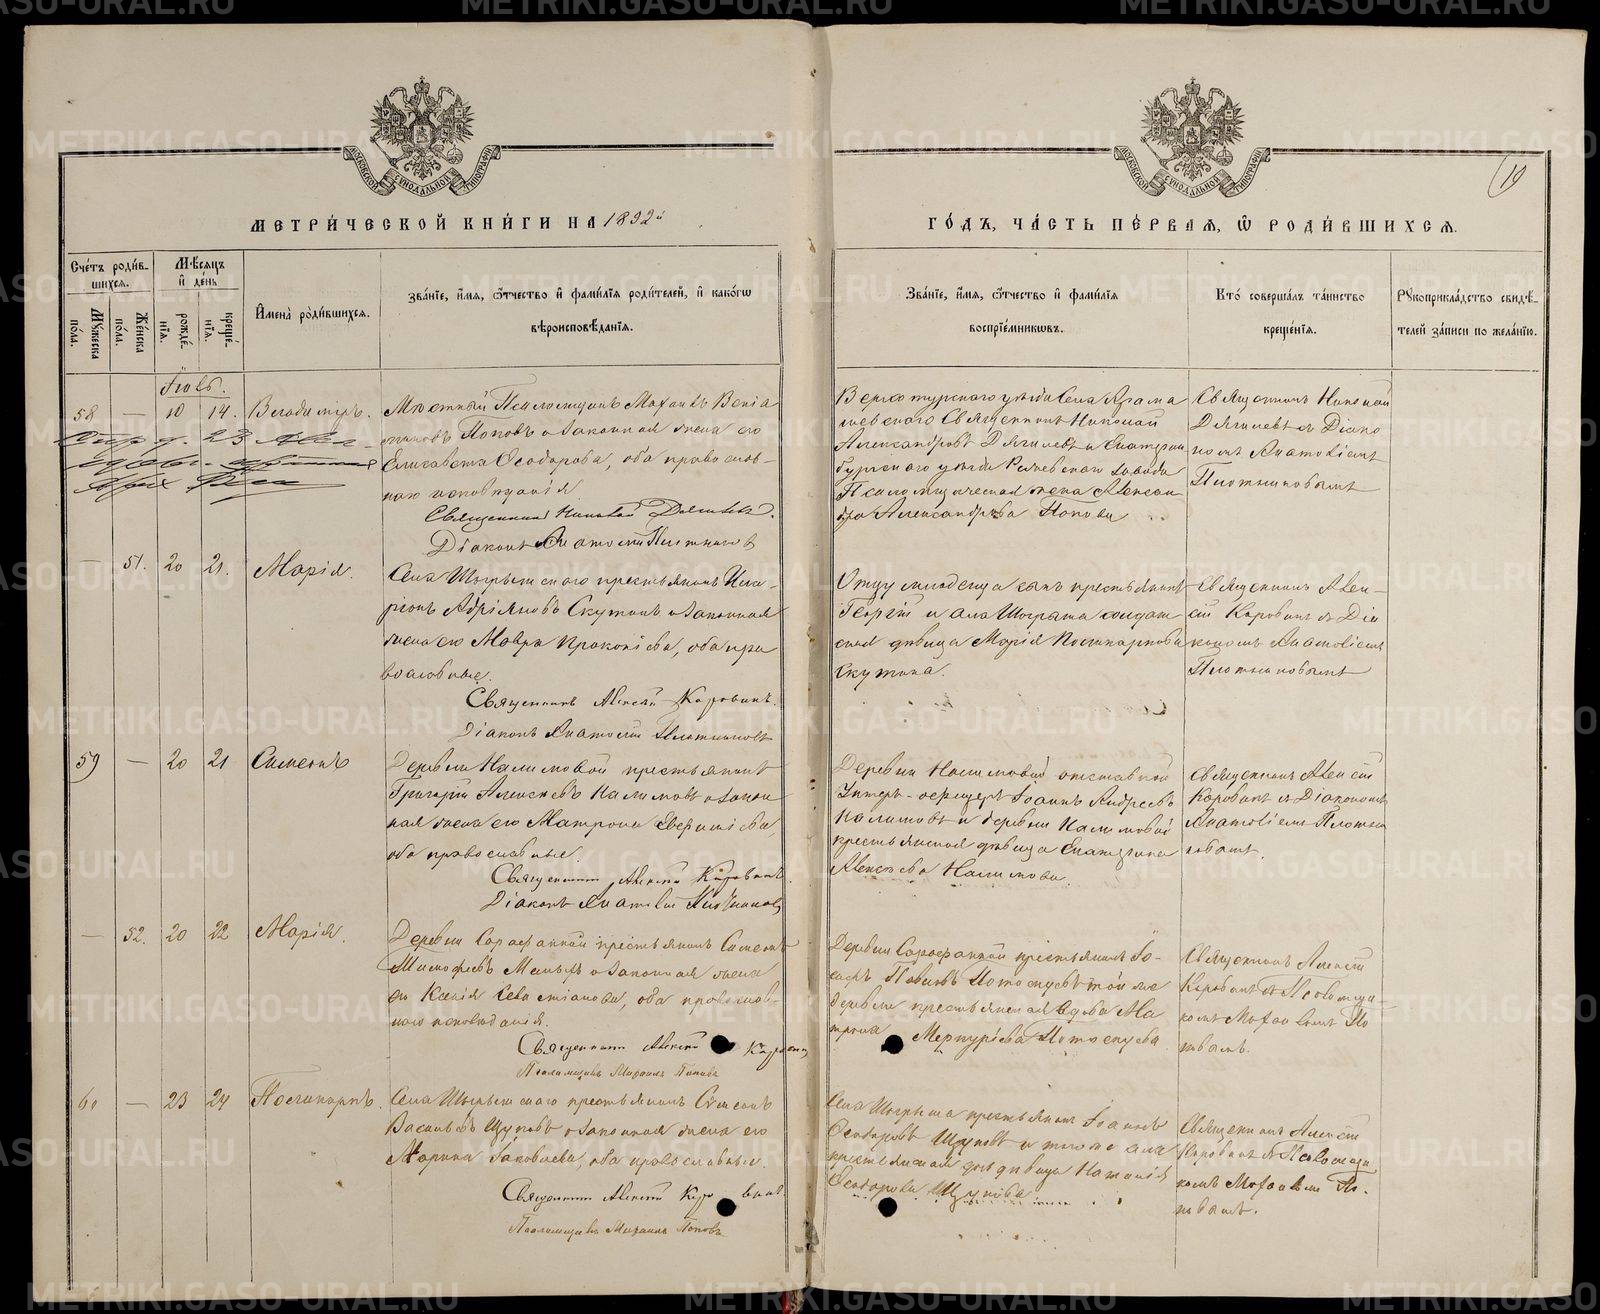 МЕТРИ́ЧЕСКОЙ КНИ́ГИ НА 1892й
ГО́ДЪ, ЧА́СТЬ ПЕ́РВАЯ, Ѿ РОДИ́ВШИХСЯ.
19
МОСКОВСКОЙ СУНОДАЛЬНОЙ ТИПОГРАФІИ
МОСКОВСКОЙ СУНОДАЛЬНОЙ ТИПОГРАФІИ
Сче́тъ роди́вшихся.
Мꙋжеска по́ла.
Же́нска по́ла.
Мѣ́сяцъ и҆ де́нь
рожде́нїя.
креще́нїя.
И҆мена̀ роди́вшихся.
Зва́нїе, и҆́мя, ѻ҆́тчество и҆ фами́лїя роди́телей, и҆ како́гѡ
вѣроисповѣ́данїя.
Зва́нїе, и҆́мя, ѻ҆́тчество и҆ фами́лїя
воспрїе́мникѡвъ.
Кто̀ соверша́лъ та́инство
креще́нїя.
Рꙋкоприкла́дство свидѣ́телей за́писи по жела́нїю.
Іюль.
58 — 10 14. Владиміръ.
Мѣстный Псаломщикъ Михаилъ Веніа
миновъ Поповъ и законная жена его
Елисавета Ѳеодорова, оба православ-
наго исповѣданія.
Священникъ Николай Дягилевъ.
Діаконъ Анатолій Плотниковъ
Верхотурскаго уѣзда села Арама
шевскаго Священникъ Николай
Александровъ Дягилевъ и Екатерин
бургскаго уѣзда завода
Псаломщическая жена Алексан
дра Александрова Попова
Священникъ Николай
Дягилевъ съ Діако
номъ Анатоліемъ
Плотниковымъ
— 51. 20 21. Марія.
Села Шогрышскаго крестьянинъ Ила-
ріонъ Адріановъ Скутинъ и законная
жена его Мавра Прокопіева, оба пра
вославные.
Священникъ Алексій Коровинъ.
Діаконъ Анатолій Плотниковъ
Отцу младенца сынъ крестьянинъ
Георгій и села Шогрыша солдат
ская дѣвица Марія Поликарпова
Скутина.
Священникъ Алек-
сій Коровинъ съ Діа
кономъ Анатоліемъ
Плотниковымъ
59 — 20 21 Симеонъ
Деревни Налимовой крестьянинъ
Григорій Алексѣевъ Налимовъ и закон
ная жена его Матрона
оба православные.
Священникъ Алексій Коровинъ.
Діаконъ Анатолій Плотниковъ
Деревни Налимовой отставной
Унтеръ-офицеръ Іоаннъ Андреевъ
Налимовъ и деревни Налимовой
крестьянская дѣвица Екатерина
Алексѣева Налимова.
Священникъ Алексій
Коровинъ съ Діакономъ
Анатоліемъ Плотни
ковымъ.
— 52. 20 22 Марія.
Деревни Сарафанной крестьянинъ Симеонъ
Тимофеевъ и законная жена
его Ксенія Севастіанова, оба православ-
наго исповѣданія.
Священникъ Алексій Коровинъ
Псаломщикъ Михаилъ Поповъ
Деревни Сарафанной крестьянинъ Іо-
Павловъ Потоскуевъ той же
деревни крестьянская вдова Ма
трона Меркурьева Потоскуева
Священникъ Алексій
Коровинъ съ Псаломщи-
комъ Михаиломъ По
повымъ.
60 — 23 24 Поликарпъ.
Села Шогрышскаго крестьянинъ Симеонъ
Васильевъ Щуповъ и законная жена его
Марина Іаковлева, оба православные.
Священникъ Алексій Коровинъ
Псаломщикъ Михаилъ Поповъ
Села Шогрыша крестьянинъ Іоаннъ
Ѳеодоровъ Щуповъ и того же села
крестьянская дѣвица Наталія
Ѳеодорова Щупова
Священникъ Алексій
Коровинъ съ Псаломщи
комъ Михаиломъ По-
повымъ.
METRIKI.GASO-URAL.RU